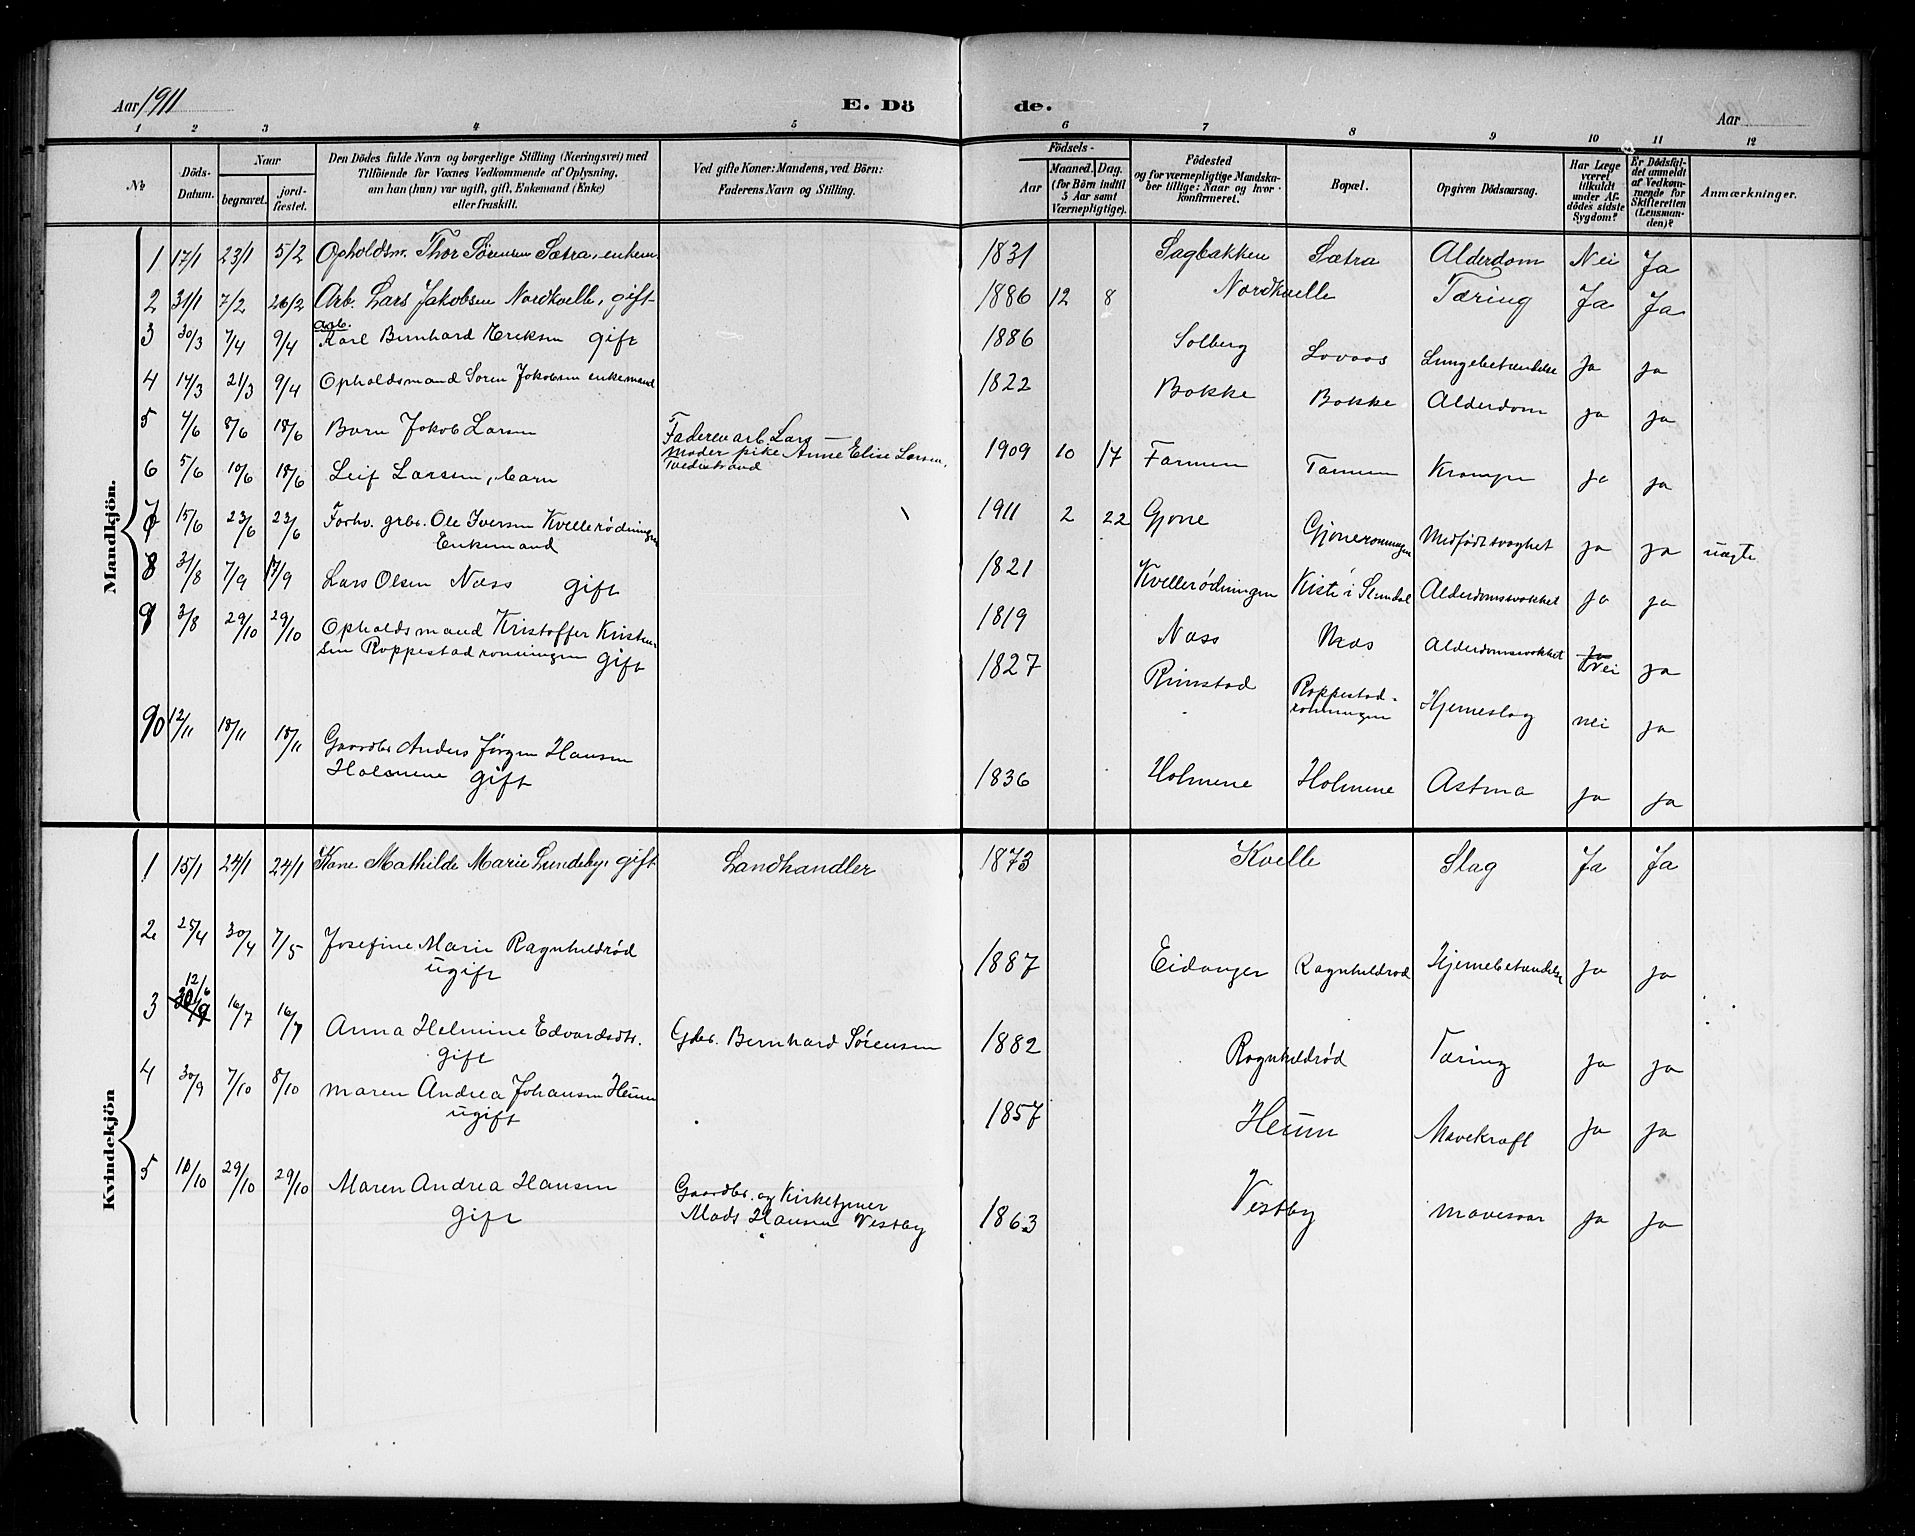 Aar 1911
E. Dö
de.
Aar
1 2 3 4 5 6 7 8 9 10 11 12
No
Döds-Datum.
Naar
begravet.
jordfæstet.
Den Dödes fulde Navn og borgerlige Stilling (Næringsvei) med
Tilföiende for Voxnes Vedkommende af Oplysning,
om han (hun) var ugift, gift, Enkemand (Enke)
eller fraskilt.
Ved gifte Koner: Mandens, ved Börn:
Faderens Navn og Stilling.
Födsels-
Aar
Maaned. Dag.
(for Börn indtil
5 Aar samt
Værnepligtige).
Födested
og for værnepligtige Mandskaber tillige: Naar og hvor
konfirmeret.
Bopæl.
Opgiven Dödsaarsag.
Har Læge
været
tilkaldt
under Afdödes sidste
Sygdom?
Er Dödsfaldet anmeldt
af Vedkommende for
Skifteretten
(Lensmanden)?
Anmærkninger.
Mandkjön.
1 17/1 23/1 5/2 Opholdsm. Thor Sørensen Sætra, enkem 1831 Sagbakken Sætra Alderdom Nei Ja
2 31/1 7/2 26/2 Arb. Lars Jakobsen Nordkvelle, gift 1886 12 8 Nordkvelle Tæring Ja Ja
arb.
3 30/3 7/4 9/4 Karl Bernhard Eriksen gift 1886 Solberg Lovaas Lungebetændelse Ja Ja
4 14/3 21/3 9/4 Opholdsmand Soren Jakobsen enkemand 1822 Bakke Bakke Alderdom ja ja
5 4/6 8/6 18/6 Barn Jakob Larsen Faderen arb. Lars — 1909 10 17 Farmen Farmen Krampe ja ja
6 5/6 10/6 18/6 Leif Larsen, barn Moder pike Anne Elise Larsen, Tvedestrand 1911 2 22 Gjone Gjonerønningen Medfødt svaghet ja ja uægte
7 15/6 23/6 23/6 Forhv. grbr. Ole Iversen Kvellerødningen
Enkemand 1821 Kvellerødningen Kiste i Slemdal Alderdomssvakhet ja ja
8 31/8 7/9 17/9 Lars Olsen Næss gift 1819 Næss Næss Alderdomssvakhet Nei ja
9 3/8 29/10 29/10 Opholdsmand Kristoffer Kristensen Roppestadrønningen gift 1827 Rimstad Roppestad-
rønningen Hjerneslag nei ja
10 12/11 18/11 18/11 Gaardbr. Anders Jørgen Hansen
Holmene gift 1836 Holmene Holmene Astma ja ja
Kvindekjön
1 15/1 24/1 24/1 Kone Mathilde Marie Lundeby, gift Landhandler 1873 Kvelle Slag Ja Ja
2 25/4 30/4 7/5 Josefine Marie Ragnhildrød
ugift 1887 Eidanger Ragnhildrød Hjernebetændelse ja ja
12/6
3 30/9 16/7 16/7 Anna Helmine Edvardsdtr.
gift Gbr. Bernhard Sørensen 1882 Ragnhildrød Tæring ja ja
4 30/9 7/10 8/10 Maren Andrea Johansen Heum
ugift 1857 Heum Mavekræft ja ja
5 10/10 29/10 29/10 Maren Andrea Hansen
Gift Gaardbr. og Kirketjener
Mads Hansen Vestby 1863 Vestby mavesaar ja ja